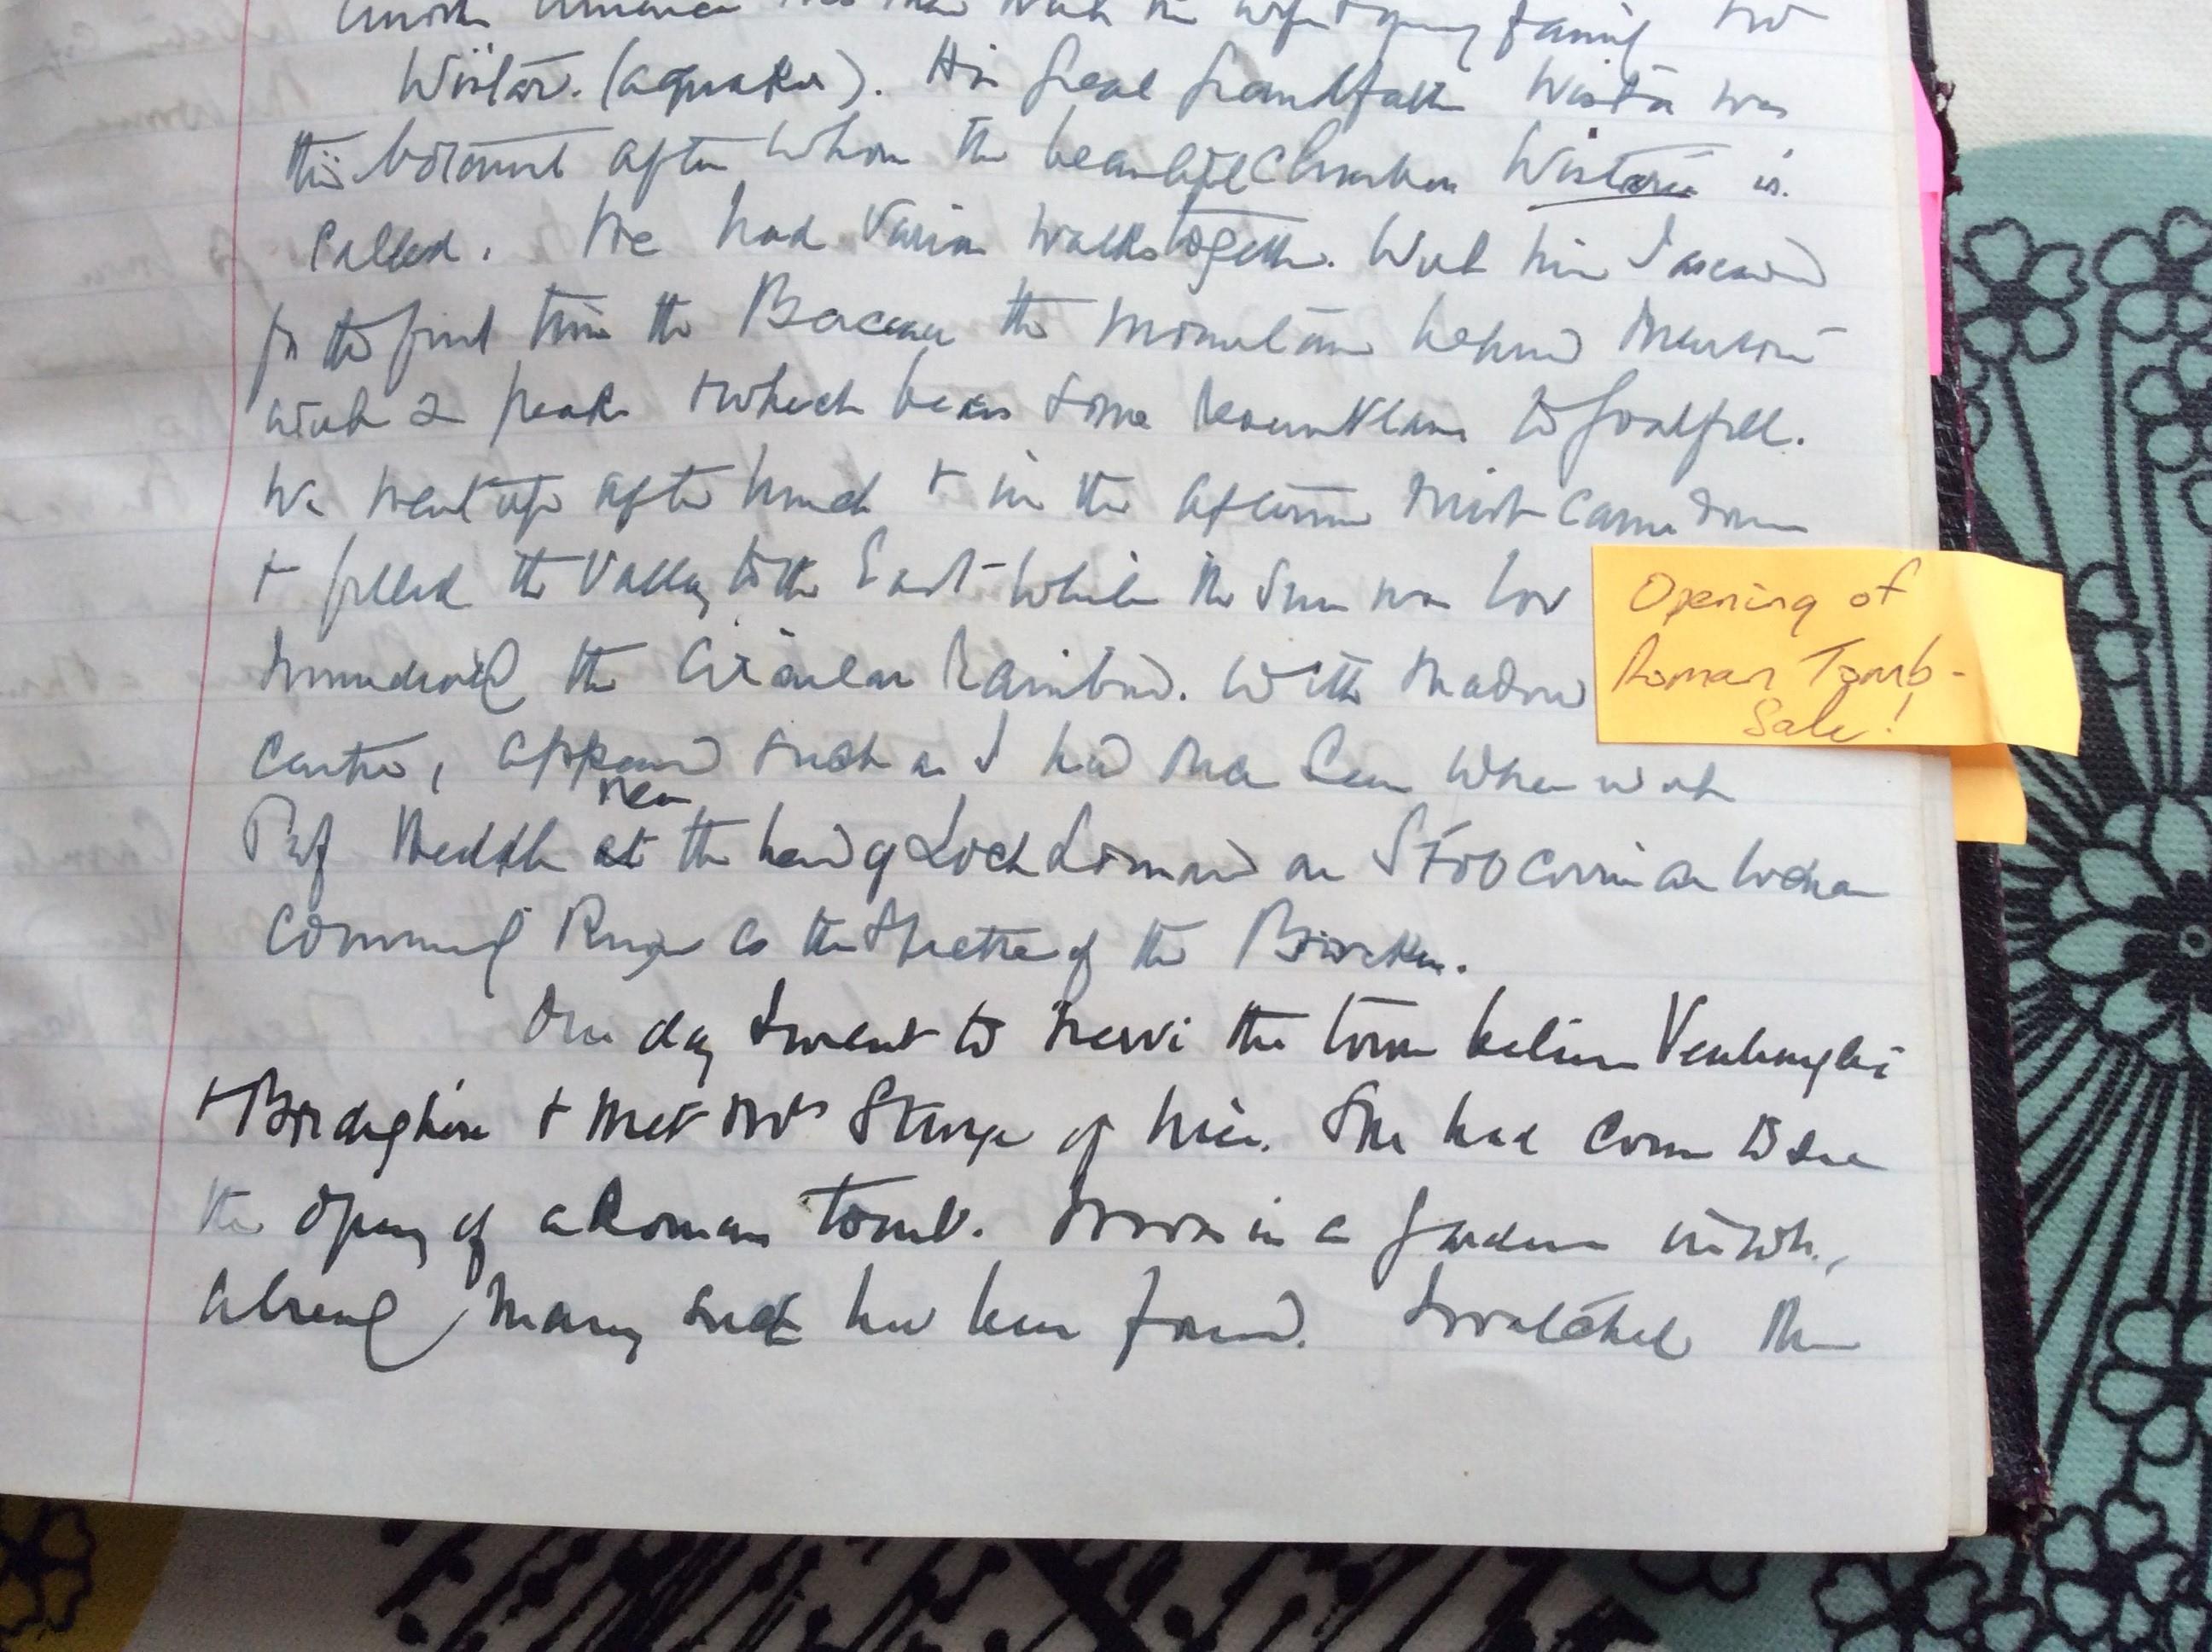 North America was then with his wife & young family
Wistar. (a quaker). His great grandfather Wistar was
the botanist after whom the beautiful climber Wistaria is
called. We had various walks together. With him I ascended
for the first time the Berceau the mountain behind Mentone
with 2 peaks & which bears some resemblance to
We went up after lunch & in the afternoon mist came down
& filled the valley to the East while the Sun was low
the Circular Rainbow. With shadow
centre, appeared such as I had once seen when with
near
Prof Heddle at the head of Loch Lomond on
commonly known as the Spectre of the Brocken.
One day I went to the town between Ventimiglia
& Bordighera & met Mrs Sturge of Nice. She had come to see
the opening of a Roman tomb. down in a garden in wh.,
already many such have been found. I watched the
Opening of
Roman Tomb -
Sale!